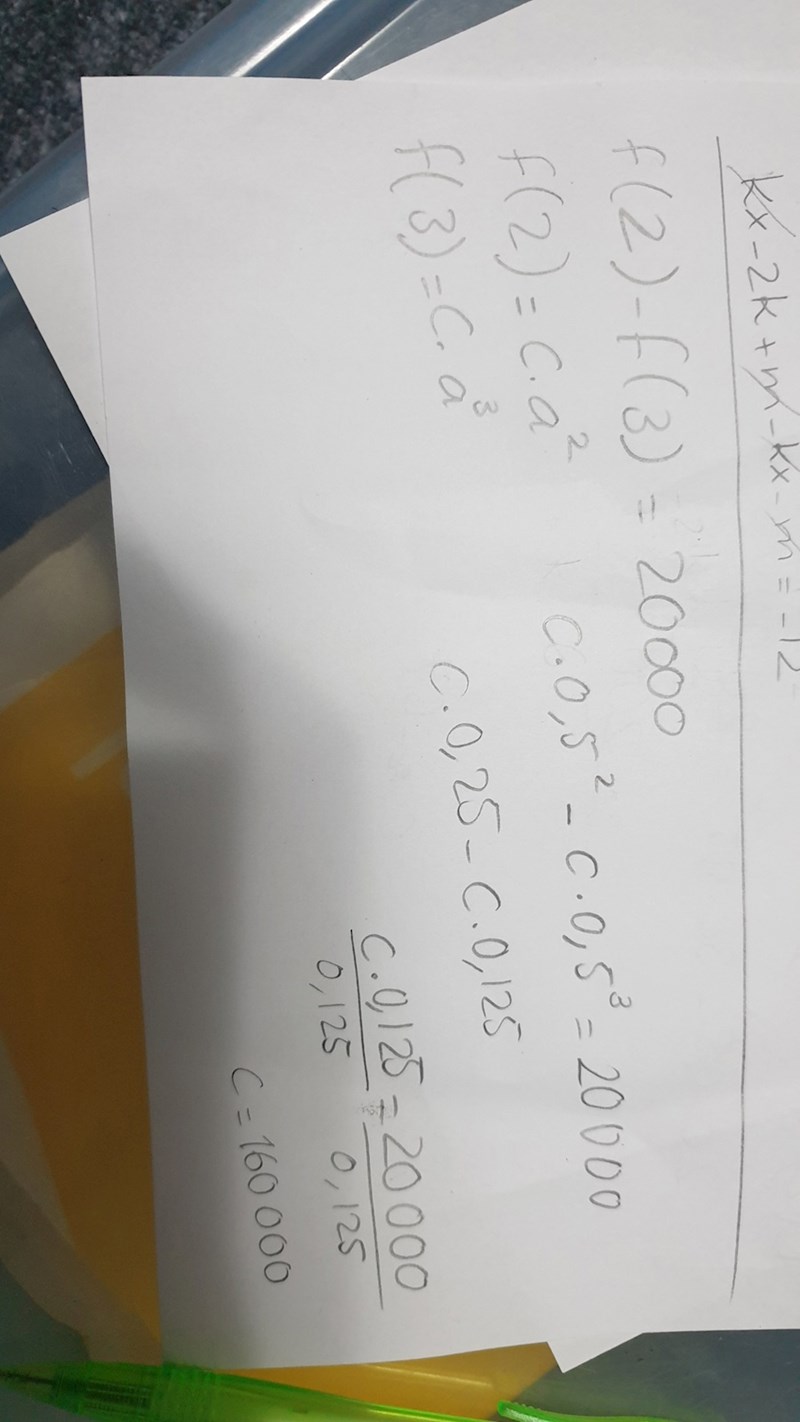 kx-2k+m-kx-m=-12
f(2)-f(3)=20000
f(2)=C·a² C·0,5²-C·0,5³=20000
f(3)=C·a³ C·0,25-C·0,125
C·0,125=20000
0,125 0,125
C=160000